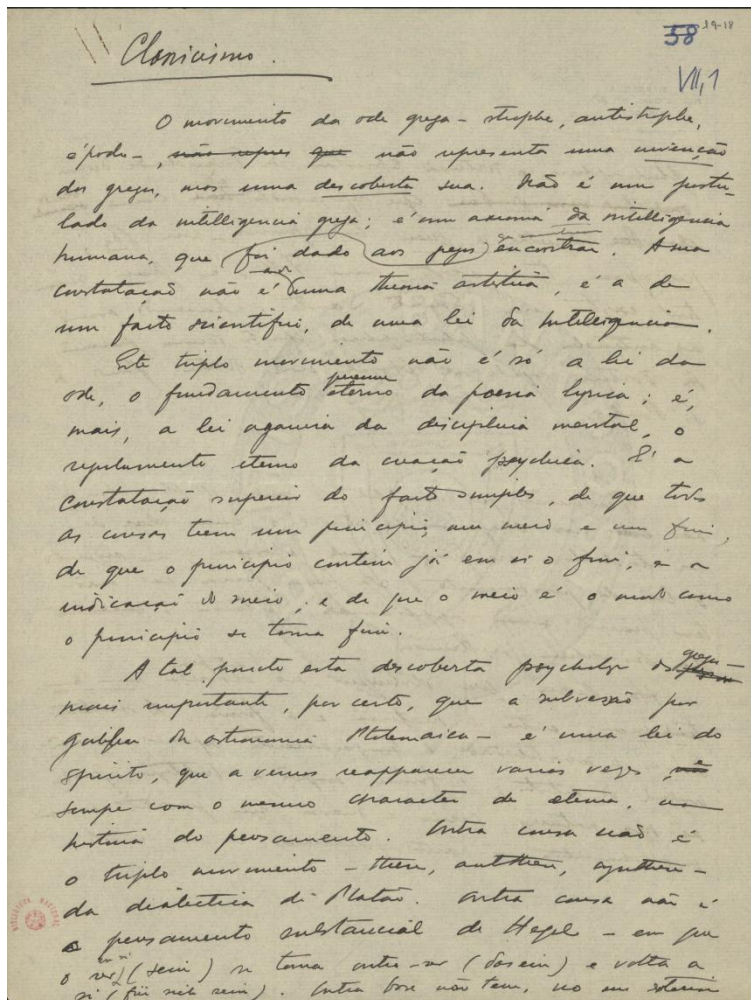 19-18
58
VII, 1
Classicismo.
O movimento da ode grega – strophe, antistrophe,
épodo –, não repres que não representa uma invenção
dos gregos, mas uma descoberta sua. Não é um postu-
lado da intelligencia grega; é um axioma da intelligencia
humana, que foi dado aos gregos encontrar. A sua
constatação não é a de uma theoria artistica, é a de
um facto scientifico, de uma lei da intelligencia.
Este triplo movimento não é só a lei da
perenne
ode, o fundamento eterno da poesia lyrica; é,
mais, a lei da disciplina mental, o
regulamento eterno da creação psychica. É a
constatação superior do facto simples, de que todas
as cousas teem um principio, um meio e um fim,
de que o principio contém já em si o fim, e a
indicação do meio; e de que o meio é o modo como
o principio se torna fim.
A tal ponto esta descoberta dos gregos –
mais importante, por certo, que a por
da astronomia Ptolemaica – é uma lei do
espirito, que a vemos reapparecer varias vezes,
sempre com o mesmo character de eterna, na
historia do pensamento. Outra cousa não é
o triplo movimento – these, antithese, synthese –
da dialectica de Platão. Outra cousa não é
o pensamento substancial de Hegel – em que
em si
o ser (sein) se torna outro-ser (dasein) e volta a
si (für sich sein). Outra base não tem, no seu